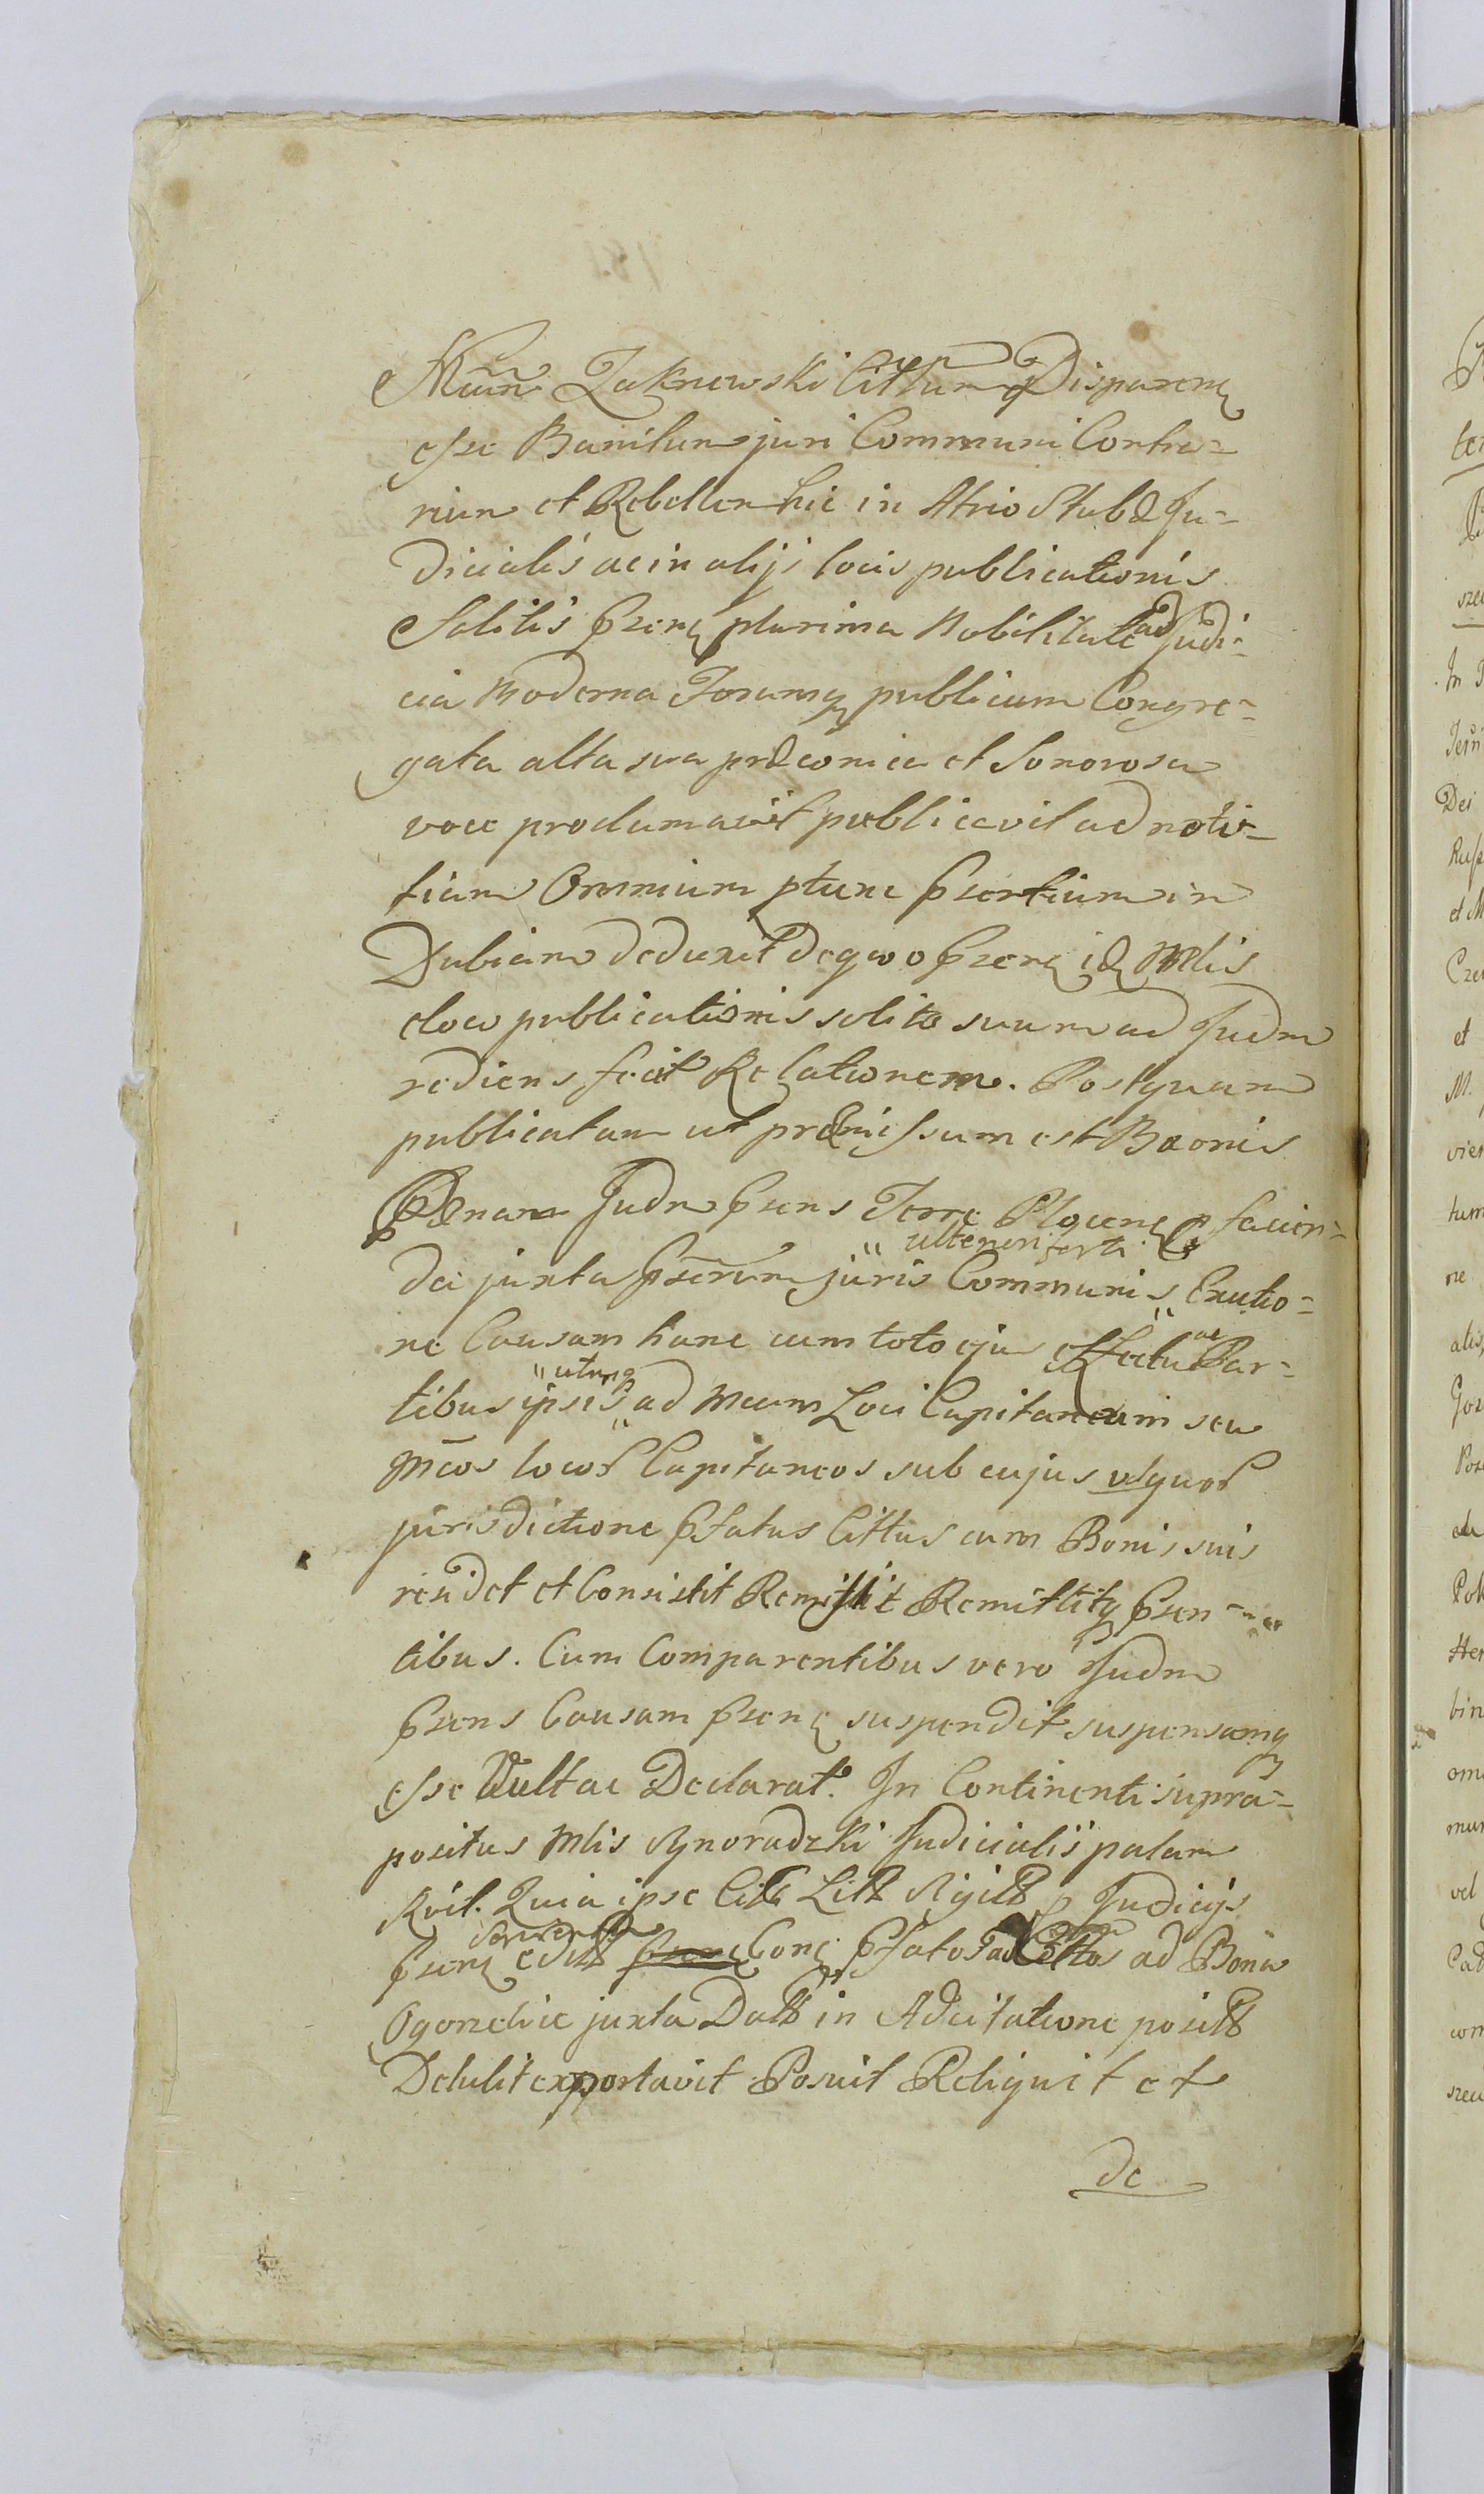 Zakrzewski Cittum Disparen
esse Banitum juri Communi Contra=
rium et Rebellem hic in Atrio Stubæ Ju=
dicialis ac in alijs locis publicationis
Solitis pszen plurima Nobilitate ad Judi=
cia Moderna Forumq publicum Congre=
gata alta sua præconica et Sonorosa
voce proclamavit publicavit ad noti=
tiam Omnium ptunc psentium in
Dubiam deduxit de quo pszen Mlis
eloco publicationis solito suum ad Judm
rediens fecit Relationem. Postquam
publicatam ut præmissum est Baonis
Pænam Judm psens Terre Plocen p facien=
da juxta pscrum juris Communis "ulteriori forti" Exutio=
ne Causam hanc cum toto ejus effectu ac Par=
tibus ipsis "utrinq" ad Mcum Loci Capitaneum seu
Mcos locor Capitaneos sub cujus vel quor
jurisdictione pfatus Cittus cum Bonis suis
residet et Consistit Remisit Remittitq psen=
tibus. Cum Comparentibus vero Judm
psens Causam psen suspendit suspensamq
esse Vult ac Declarat. In Continenti supra=
positus Mlis Synoradzki Judicialis palam
Rcit. Quia ipse Litt Sigill p Judicijs
psen edit Con pfatos ad Bona
Ogonelice juxta Datt in Adcitatione posit
Detulit exportavit Posuit Reliquit et
de